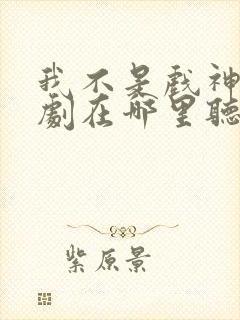 我不是戲神
劇在哪里聽
紫原景